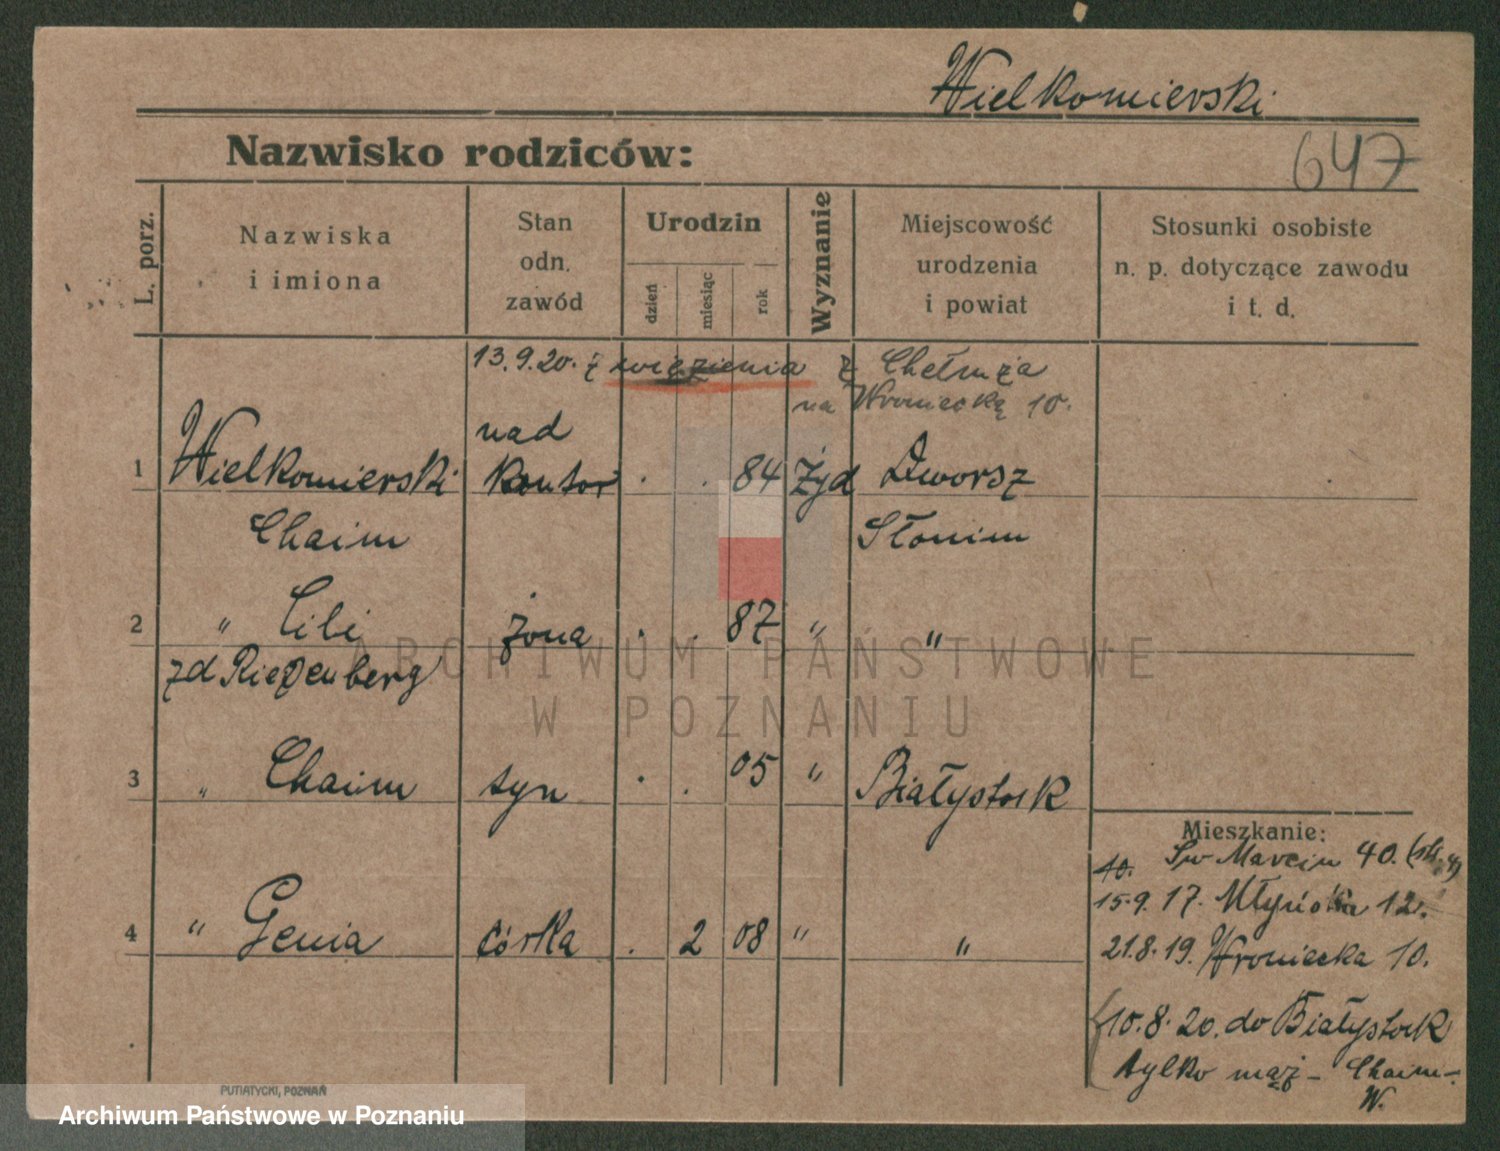 Wielkomierski
Nazwisko rodziców:
647
L. porz.
Nazwiska
i imiona
Stan
odn.
zawód
Urodzin
dzień
miesiąc
rok
Wyznanie
Miejscowość
urodzenia
i powiat
Stosunki osobiste
n. p. dotyczące zawodu
i t. d.
13.9.20. z więzienia z Chełmża
na Wroniecką 10.
nad
1 Wielkomierski kantor . . 84 Żyd Dworsz
Chaim Słonim
2 " Lili żona . . 87 " "
zd Riezenberg
3 " Chaim syn . . 05 " Białystok
Mieszkanie:
10. Św Marcin 40.
15.9.17. Młyńska 12.
4 " Genia córka . 2 08 " "
21.8.19. Wroniecka 10.
10.8.20. do Białystok
tylko mąż - Chaim -
W.
ARCHIWUM PAŃSTWOWE
W POZNANIU
PUTIATYCKI, POZNAŃ
Archiwum Państwowe w Poznaniu